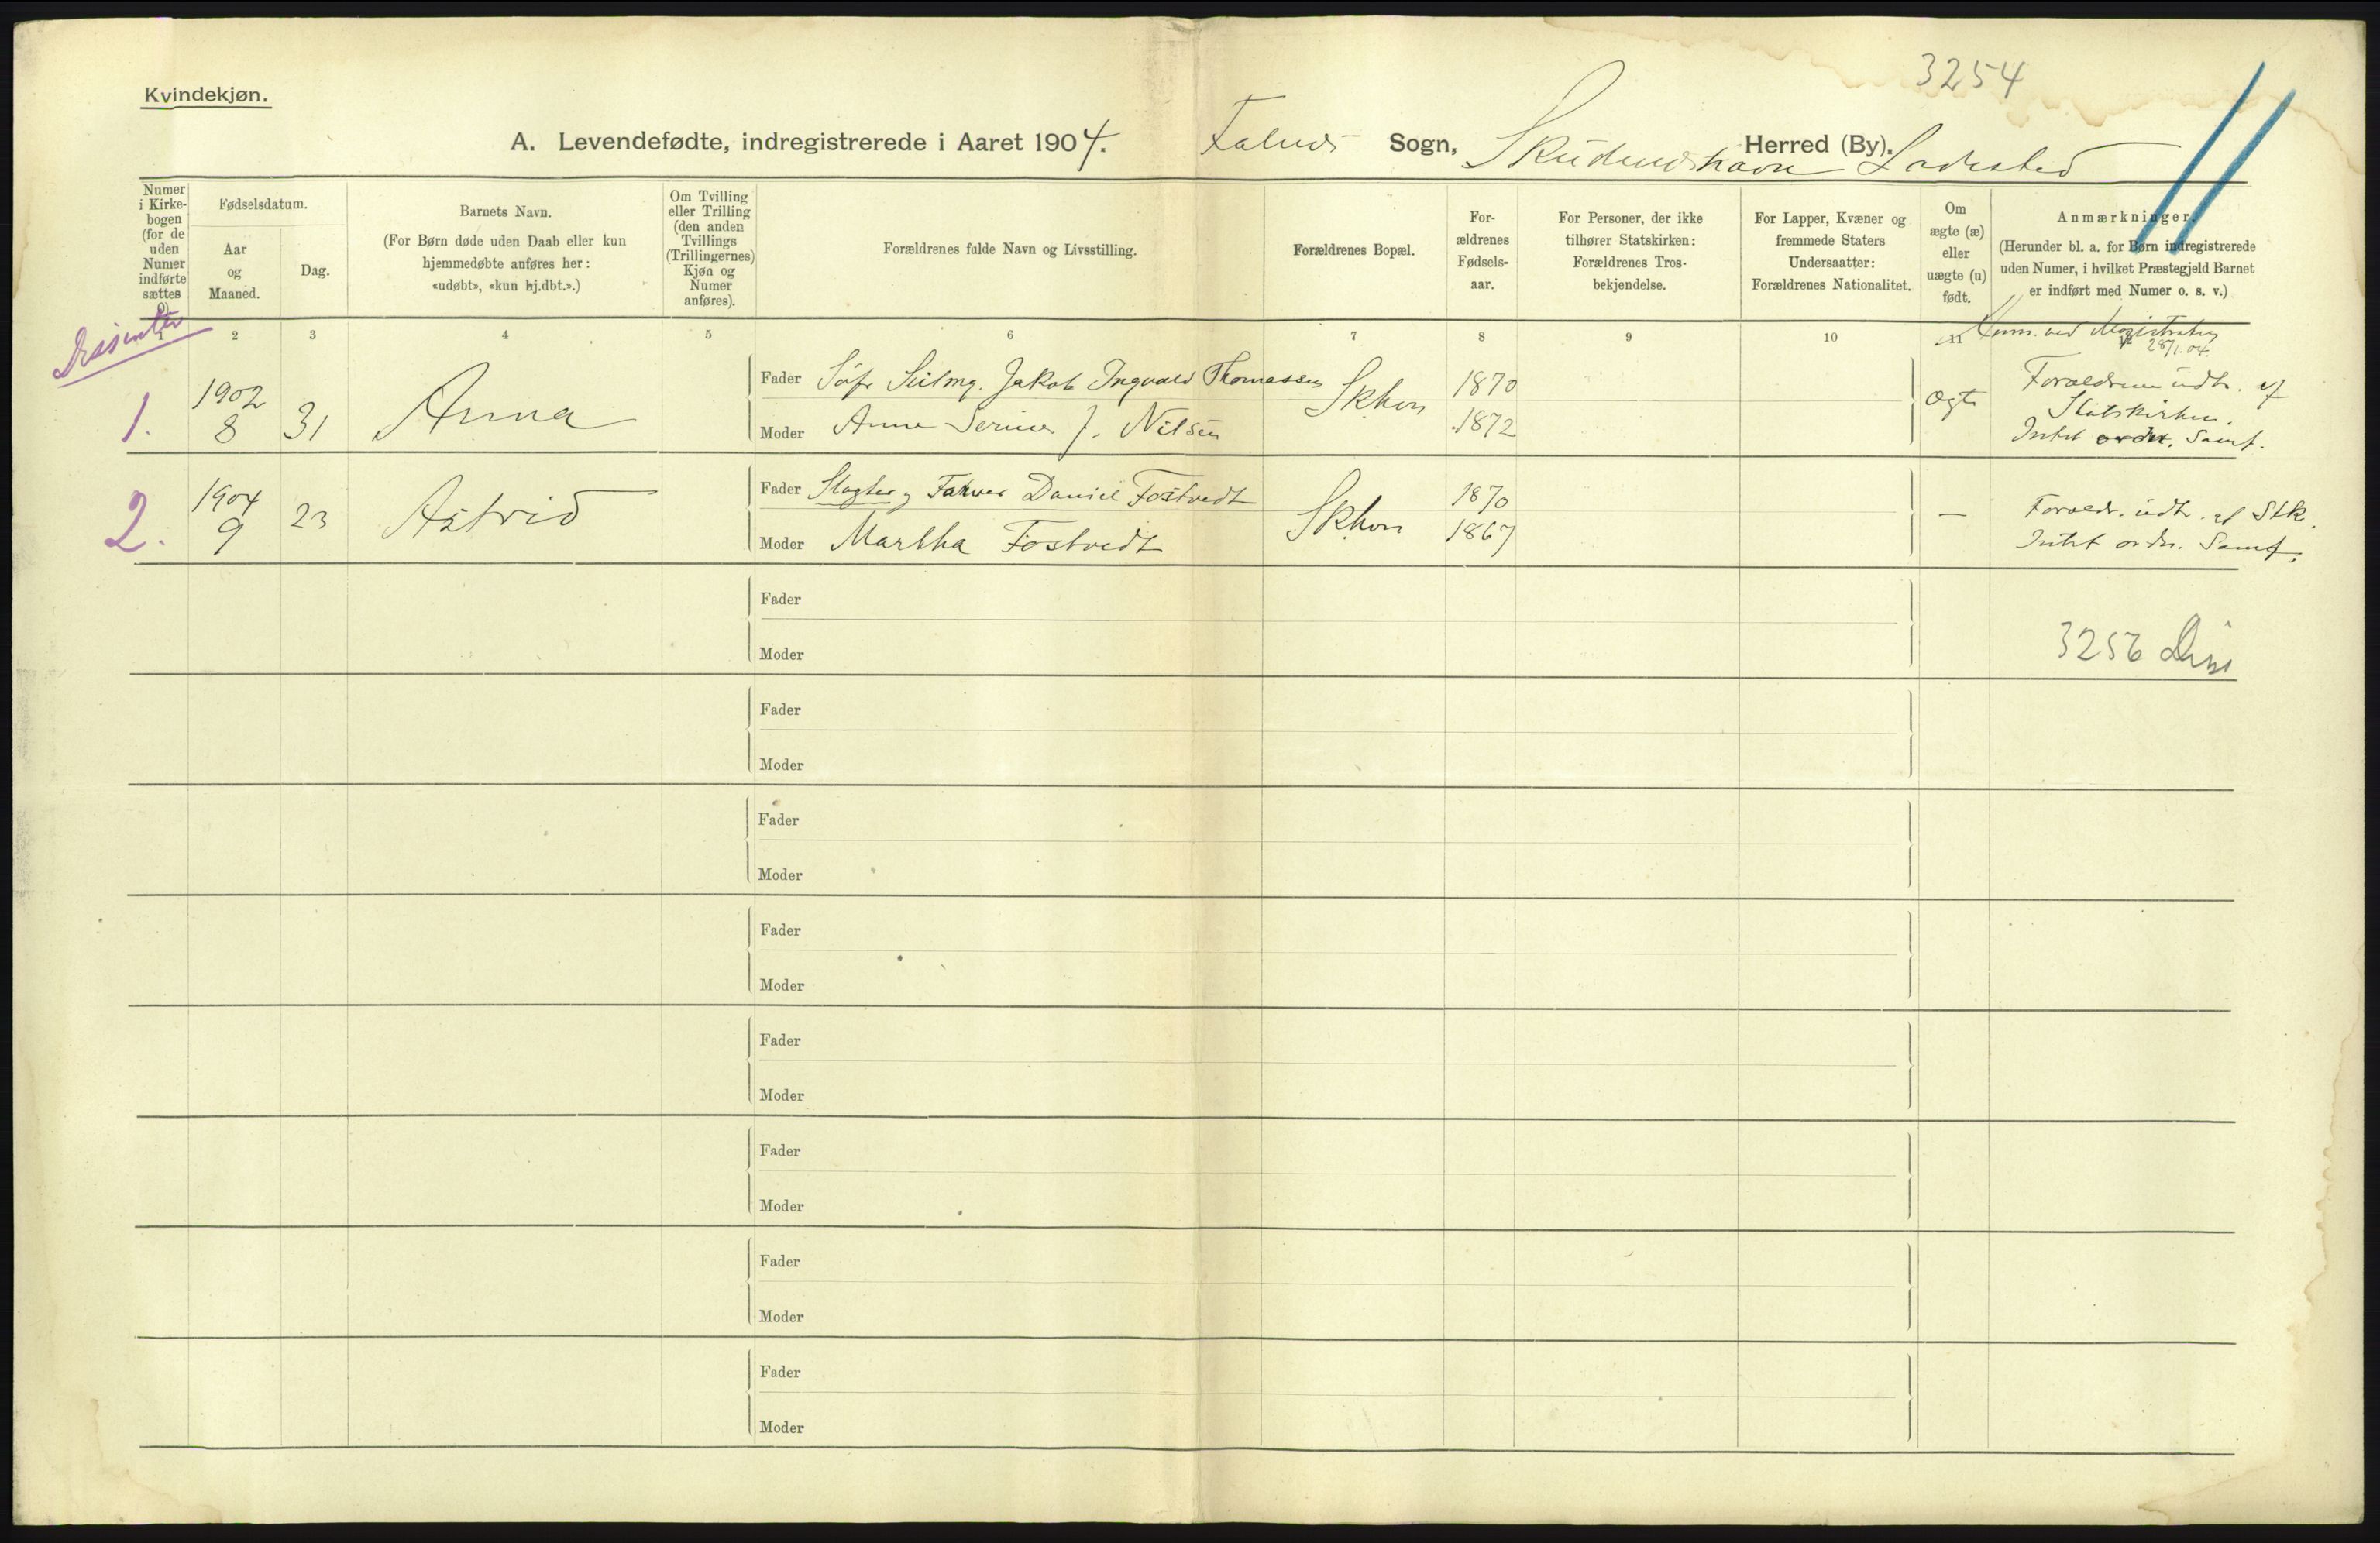 3254
Kvindekjøn.
A. Levendefødte, indregistrerede i Aaret 1904. Falnes Sogn, Skudeneshavn Ladested Herred (By).
Numer i Kirke-bogen (for de uden Numer indførte sættes 0).
Fødselsdatum.
Aar og Maaned.
Dag.
Barnets Navn.
(For Børn døde uden Daab eller kun
hjemmedøbte anføres her:
«udøbt», «kun hj.dbt.».)
Om Tvilling
eller Trilling
(den anden
Tvillings
(Trillingernes)
Kjøn og
Numer
anføres).
Forældrenes fulde Navn og Livsstilling.
Forældrenes Bopæl.
For-
ældrenes
Fødsels-
aar.
For Personer, der ikke
tilhører Statskirken:
Forældrenes Tros-
bekjendelse.
For Lapper, Kvæner og
fremmede Staters
Undersaatter:
Forældrenes Nationalitet.
Om
ægte (æ)
eller
uægte (u)
født.
Anmærkninger.
(Herunder bl. a. for Børn indregistrerede
uden Numer, i hvilket Præstegjeld Barnet
er indført med Numer o. s. v.)
Dissenter
1 2 3 4 5 6 7 8 9 10 11
Anm. ved Magistraten
28/1.04.
1. 1902 8 31 Anna
Fader Jakob Ingvald Thomassen Skhvn 1870
Moder Anne Serine J. Nilsen 1872
Ægte
Forældrene udtr. af
Statskirken.
Intet ordn. Samf.
2. 1904 9 23 Astrid
Fader Slagter, Farver Daniel Fostvedt Skhvn 1870
Moder Martha Fostvedt 1867
—
Forældr. udtr. af Stk.
Intet ordn. Samf.
Fader
Moder
3256 Diss
Fader
Moder
Fader
Moder
Fader
Moder
Fader
Moder
Fader
Moder
Fader
Moder
Fader
Moder